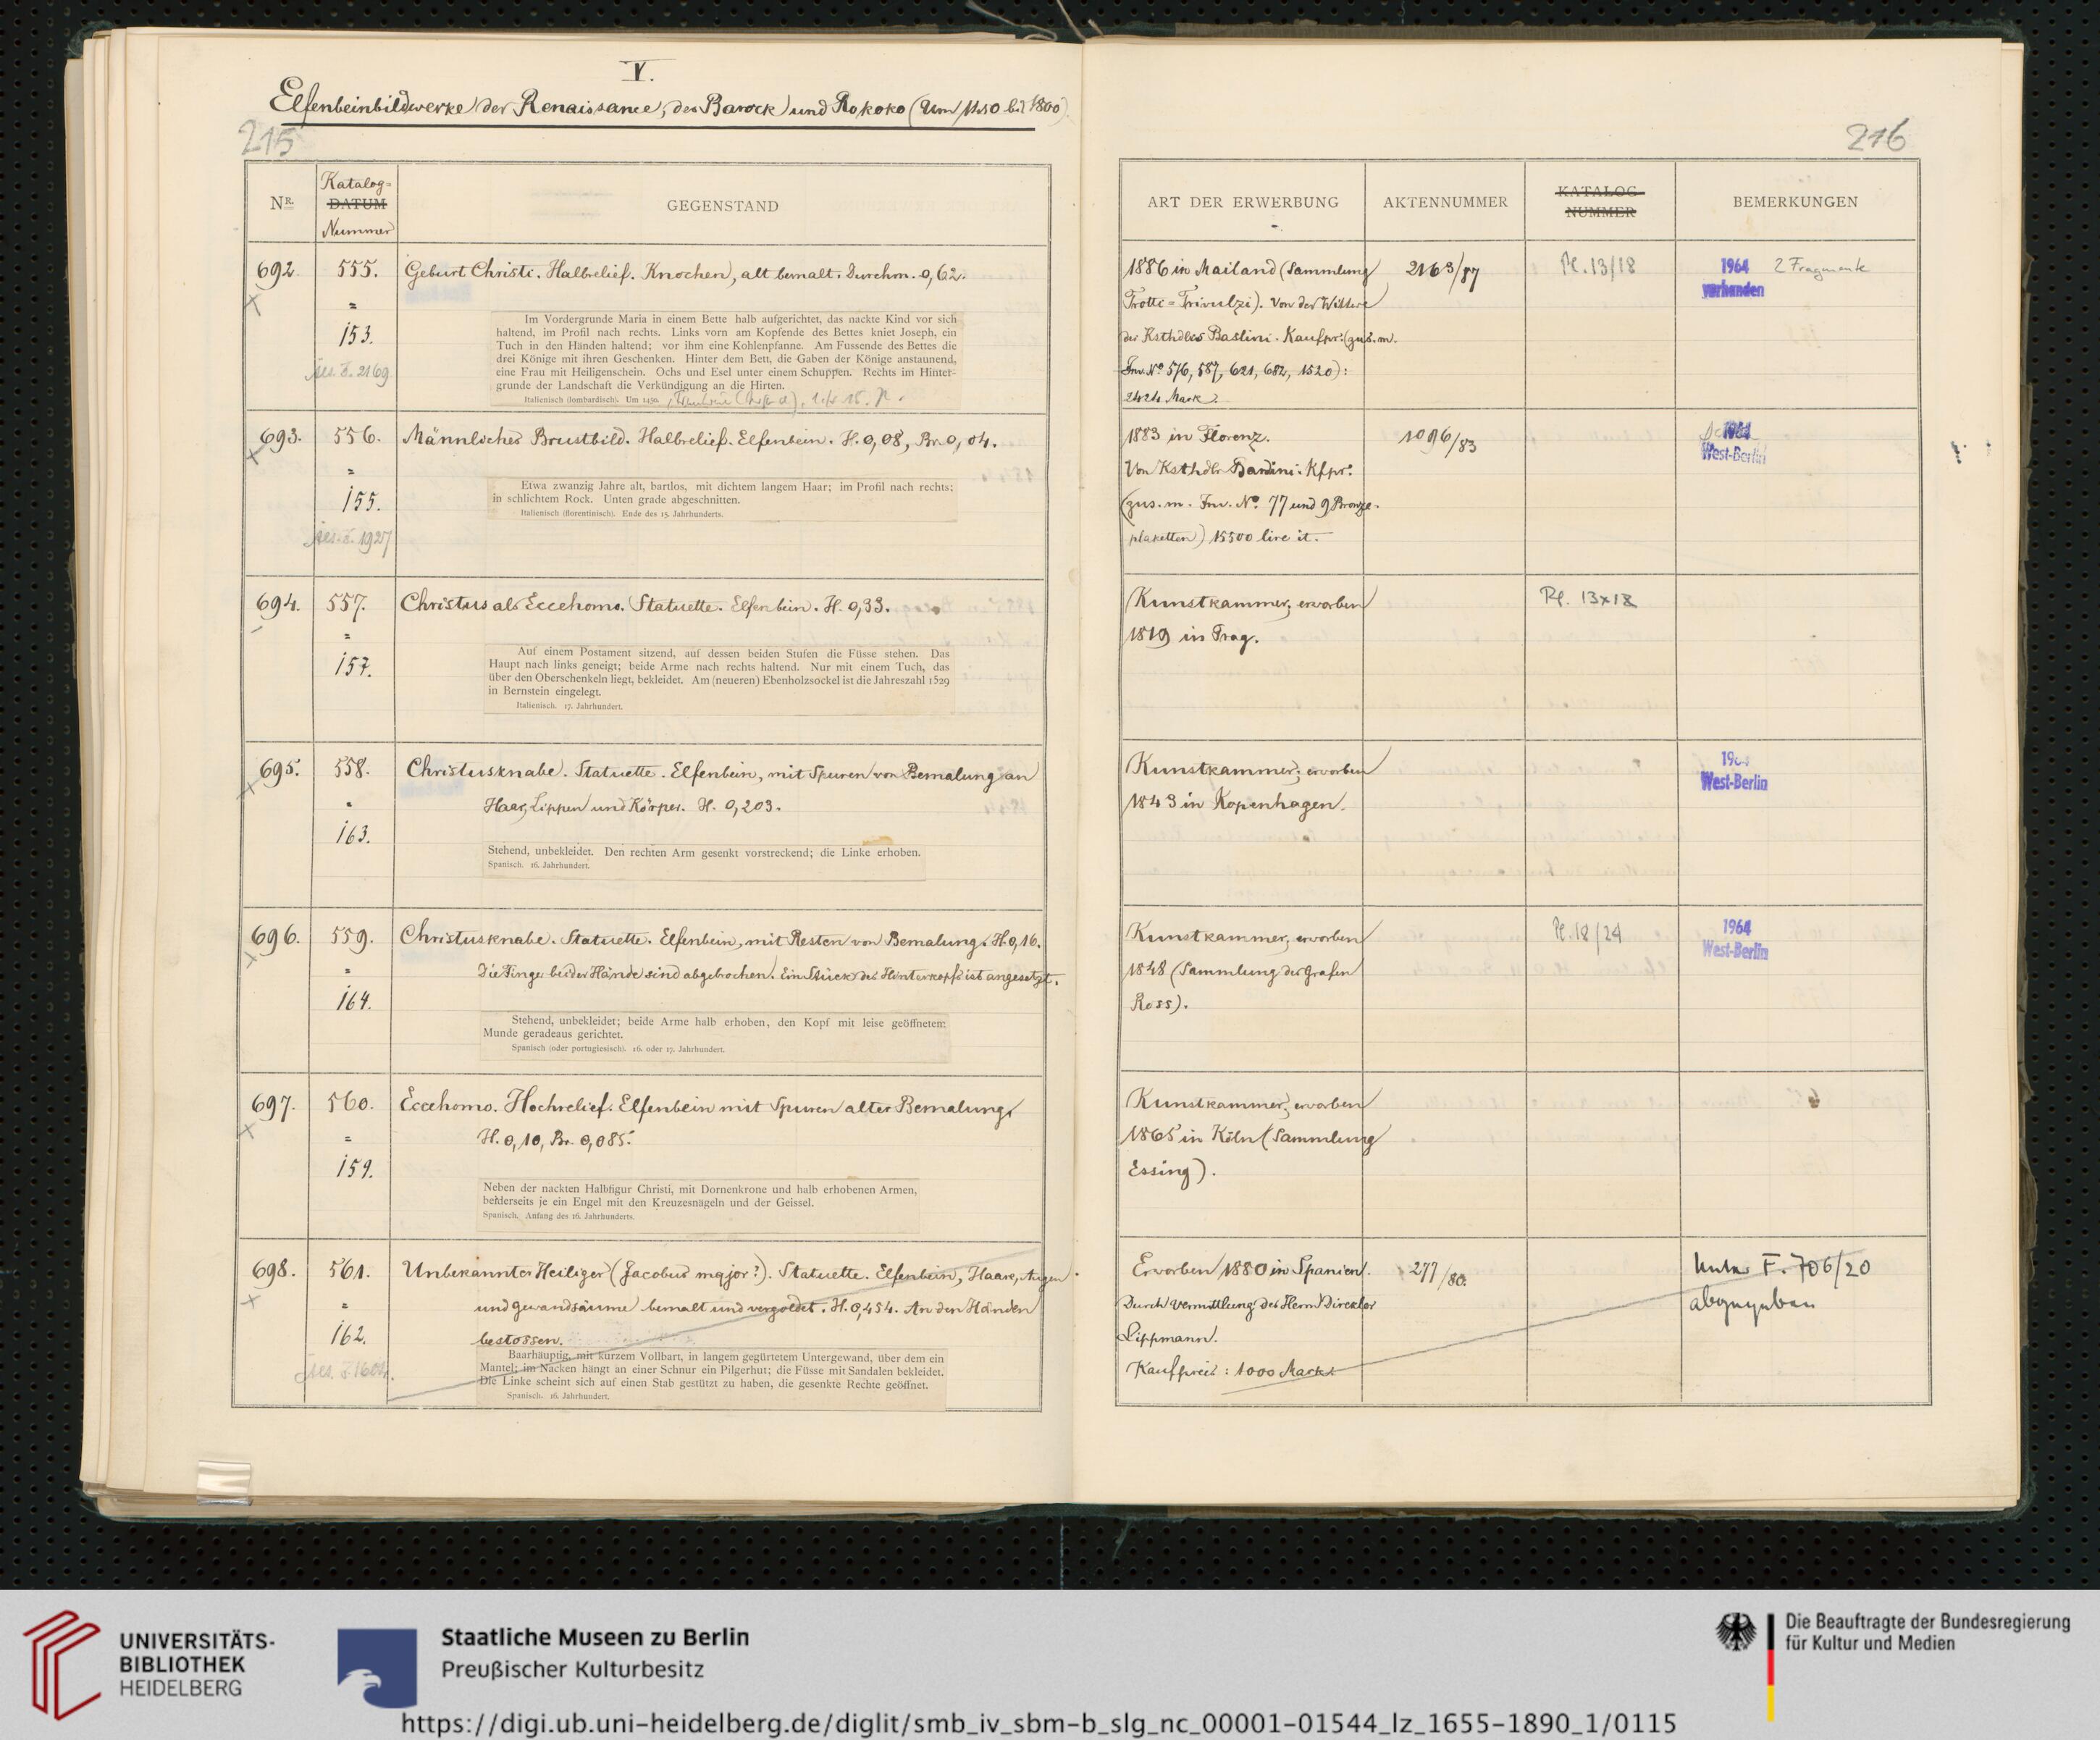 V.
Elfenbeinbildwerke der Renaissance, des Barock und Rokoko (Um 1450 bis 1800)
215
216
NR.
Katalog=
DATUM
Nummer
GEGENSTAND
ART DER ERWERBUNG
AKTENNUMMER
KATALOG-
NUMMER
BEMERKUNGEN
692.
555.
=
153.
Res. I. 2169
Geburt Christi. Halbrelief. Knochen, alt bemalt. Durchm. 0,62.
Im Vordergrunde Maria in einem Bette halb aufgerichtet, das nackte Kind vor sich
haltend, im Profil nach rechts. Links vorn am Kopfende des Bettes kniet Joseph, ein
Tuch in den Händen haltend; vor ihm eine Kohlenpfanne. Am Fussende des Bettes die
drei Könige mit ihren Geschenken. Hinter dem Bett, die Gaben der Könige anstaunend,
eine Frau mit Heiligenschein. Ochs und Esel unter einem Schuppen. Rechts im Hinter-
grunde der Landschaft die Verkündigung an die Hirten.
Italienisch (lombardisch). Um 1450.
1886 in Mailand (Sammlung
Trotti=Trivulzi). Von der Wittwe
des Ksthdlrs Baslini. Kaufpr. (zus. m.
Inv. No 576, 587, 621, 682, 1520):
2424 Mark.
2163/87
Pl. 13/18
1964
vorhanden
2 Fragmente
693.
556.
=
155.
Res. I. 1927
Männliches Brustbild. Halbrelief. Elfenbein. H. 0,08, Br. 0,04.
Etwa zwanzig Jahre alt, bartlos, mit dichtem langem Haar; im Profil nach rechts;
in schlichtem Rock. Unten grade abgeschnitten.
Italienisch (florentinisch). Ende des 15. Jahrhunderts.
1883 in Florenz.
Von Ksthdlr Bardini. Kfpr.
(zus. m. Inv. No 77 und 9 Bronze-
plaketten) 15500 lire it.
1096/83
1964
West-Berlin
694.
557.
=
157.
Christus als Eccehomo. Statuette. Elfenbein. H. 0,33.
Auf einem Postament sitzend, auf dessen beiden Stufen die Füsse stehen. Das
Haupt nach links geneigt; beide Arme nach rechts haltend. Nur mit einem Tuch, das
über den Oberschenkeln liegt, bekleidet. Am (neueren) Ebenholzsockel ist die Jahreszahl 1529
in Bernstein eingelegt.
Italienisch. 17. Jahrhundert.
Kunstkammer, erworben
1819 in Prag.
Pl. 13x18
695.
558.
=
163.
Christusknabe. Statuette. Elfenbein, mit Spuren von Bemalung an
Haar, Lippen und Körper. H. 0,203.
Stehend, unbekleidet. Den rechten Arm gesenkt vorstreckend; die Linke erhoben.
Spanisch. 16. Jahrhundert.
Kunstkammer, erworben
1843 in Kopenhagen.
West-Berlin
696.
559.
=
164.
Christusknabe. Statuette. Elfenbein, mit Resten von Bemalung. H. 0,16.
Die Finger beider Hände sind abgebrochen. Ein Stück des Hinterkopfs ist angesetzt.
Stehend, unbekleidet; beide Arme halb erhoben, den Kopf mit leise geöffnetem
Munde geradeaus gerichtet.
Spanisch (oder portugiesisch). 16. oder 17. Jahrhundert.
Kunstkammer, erworben
1848 (Sammlung des Grafen
Ross).
Pl. 18/24
1964
West-Berlin
697.
560.
=
159.
Eccehomo. Hochrelief. Elfenbein mit Spuren alter Bemalung.
H. 0,10, Br. 0,085.
Neben der nackten Halbfigur Christi, mit Dornenkrone und halb erhobenen Armen,
beiderseits je ein Engel mit den Kreuzesnägeln und der Geissel.
Spanisch. Anfang des 16. Jahrhunderts.
Kunstkammer, erworben
1865 in Köln (Sammlung
Essing).
698.
561.
=
162.
Res. I. 1604.
Unbekannter Heiliger (Jacobus major?). Statuette. Elfenbein, Haare, Augen
und Gewandsäume bemalt und vergoldet. H. 0,454. An den Händen
bestossen.
Baarhäuptig, mit kurzem Vollbart, in langem gegürtetem Untergewand, über dem ein
Mantel; im Nacken hängt an einer Schnur ein Pilgerhut; die Füsse mit Sandalen bekleidet.
Die Linke scheint sich auf einen Stab gestützt zu haben, die gesenkte Rechte geöffnet.
Spanisch. 16. Jahrhundert.
Erworben 1880 in Spanien.
Durch Vermittlung des Herrn Direktor
Lippmann.
Kaufpreis: 1000 Mark.
277/80.
Unter F. 706/20
abgegeben
UNIVERSITÄTS-
BIBLIOTHEK
HEIDELBERG
Staatliche Museen zu Berlin
Preußischer Kulturbesitz
Die Beauftragte der Bundesregierung
für Kultur und Medien
https://digi.ub.uni-heidelberg.de/diglit/smb_iv_sbm-b_slg_nc_00001-01544_lz_1655-1890_1/0115